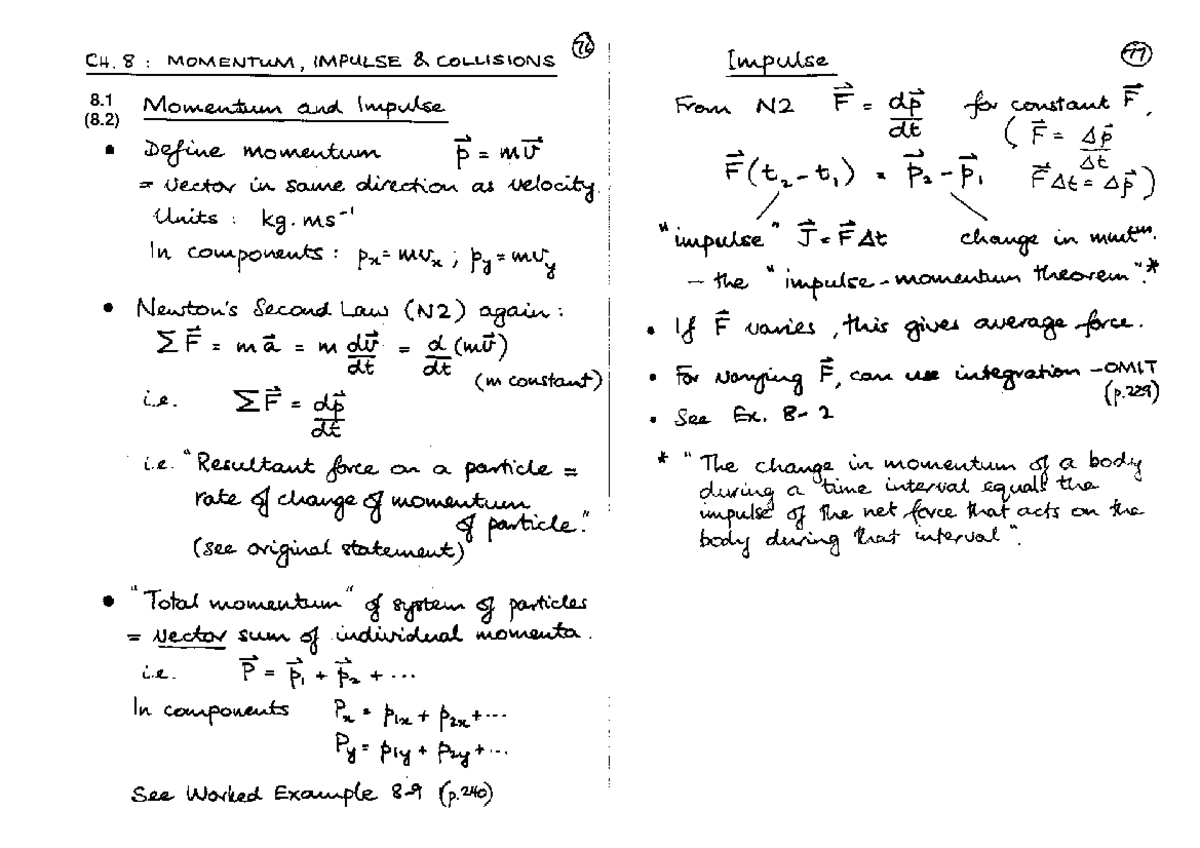 CH. 8 : MOMENTUM, IMPULSE & COLLISIONS
76
8.1 Momentum and Impulse
(8.2)
• Define momentum p⃗ = mv⃗
= vector in same direction as velocity.
Units : kg.ms⁻¹
In components : pₓ = mvₓ ; p_y = mv_y
• Newton's Second Law (N2) again :
ΣF⃗ = ma⃗ = m dv⃗/dt = d/dt (mv⃗)
(m constant)
i.e. ΣF⃗ = dp⃗/dt
i.e. "Resultant force on a particle =
rate of change of momentum
of particle."
(see original statement)
• "Total momentum" of system of particles
= vector sum of individual momenta.
i.e. P⃗ = p⃗₁ + p⃗₂ + ...
In components Pₓ = p₁ₓ + p₂ₓ + ...
P_y = p₁y + p₂y + ...
See Worked Example 8-9 (p.240)
Impulse
77
From N2 F⃗ = dp⃗/dt for constant F⃗,
( F⃗ = Δp⃗/Δt
F⃗(t₂ - t₁) = p⃗₂ - p⃗₁ F⃗Δt = Δp⃗ )
"impulse" J⃗ = F⃗Δt change in mmtᵘᵐ.
– the "impulse-momentum theorem".*
• If F⃗ varies, this gives average force.
• For varying F⃗, can use integration – OMIT
(p.229)
• See Ex. 8-2
* "The change in momentum of a body
during a time interval equals the
impulse of the net force that acts on the
body during that interval".